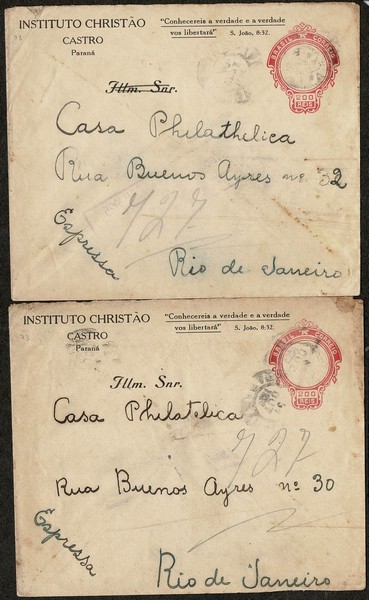 INSTITUTO CHRISTÃO
CASTRO
Paraná
"Conhecereis a verdade e a verdade
vos libertará" S. João, 8:32.
BRASIL CORREIO
200
REIS
Illm. Snr.
Casa Philathelica
Rua Buenos Ayres nº 32
727
Espressa
Rio de Janeiro
INSTITUTO CHRISTÃO
CASTRO
Paraná
"Conhecereis a verdade e a verdade
vos libertará" S. João, 8:32.
BRASIL CORREIO
200
REIS
Illm. Snr.
Casa Philatelica
727
Rua Buenos Ayres nº 30
Espressa
Rio de Janeiro